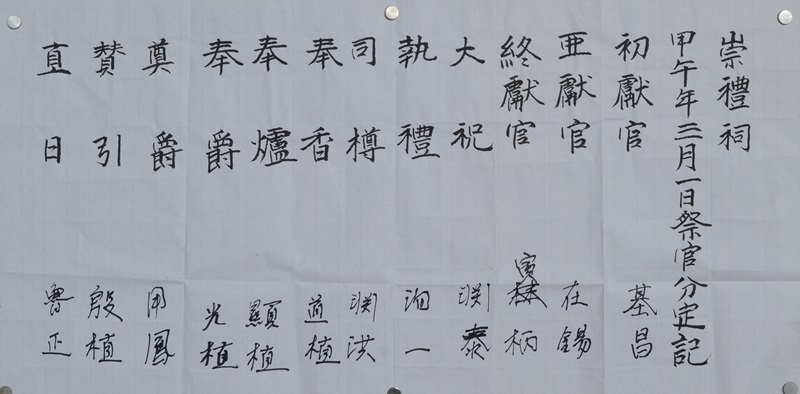 崇禮祠
甲午年三月一日祭官分定記
初獻官 基昌
亜獻官 在錫
終獻官 寅柄
大祝 渊泰
執禮 洎一
司樽 渊洪
奉香 道植
奉爐 顯植
奉爵 光植
奠爵 用鳳
賛引 殷植
直日 魯正